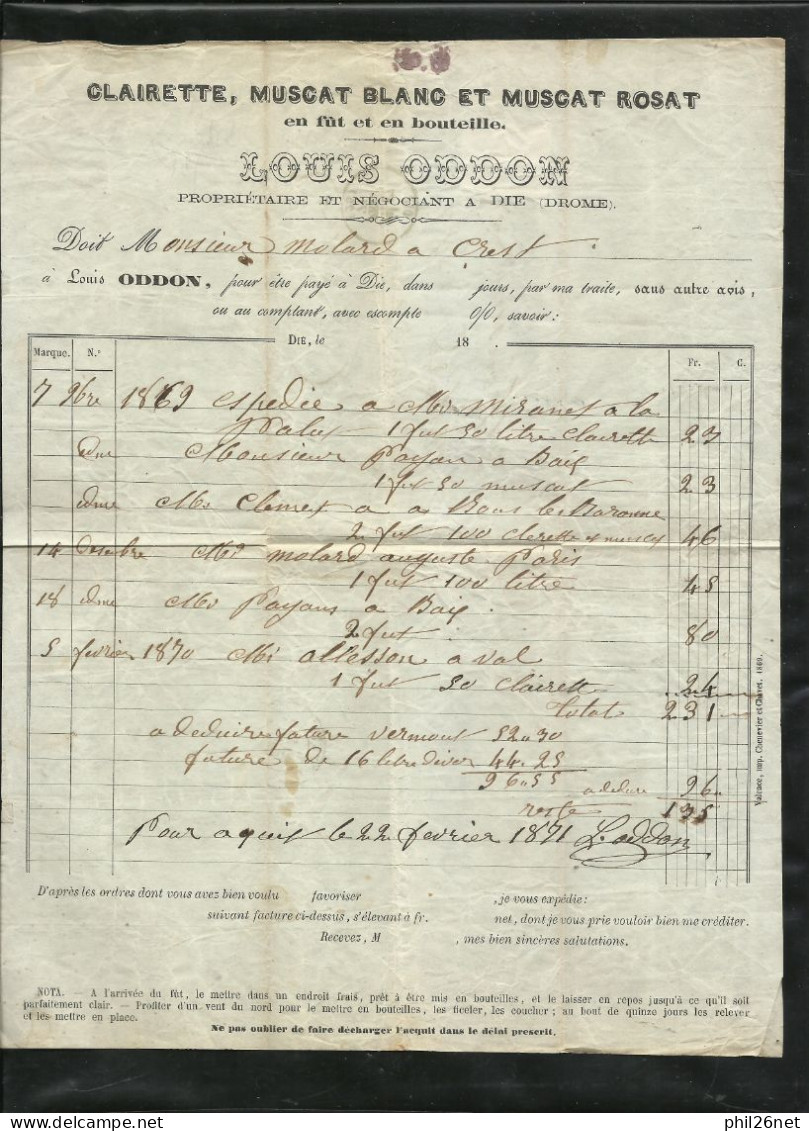 CLAIRETTE, MUSCAT BLANC ET MUSCAT ROSAT
en fût et en bouteille.
LOUIS ODDON
PROPRIÉTAIRE ET NÉGOCIANT A DIE (DROME).
Doit Monsieur Molard a Crest
à Louis ODDON, pour être payé à Die, dans jours, par ma traite, sans autre avis,
ou au comptant, avec escompte 0/0, savoir:
DIE, le 18 .
Marque. N.° Fr. C.
7 9bre 1869 espedie a Mr Miranet a la
1 fut 50 litre Clairette 23
idme Monsieur Payan a Baix
1 fut 50 muscat 23
idme Mr Clemet a
2 fut 100 clerette et muscat 46
14 desembre Mr molard auguste Paris
1 fut 100 litre 45
18 idme Mr Payans a Baix
2 fut 80
5 fevrier 1870 Mr allesson a val
1 fut 50 clairette 24
total 231
a deduire fature vermout 52.30
fature de 16 litre diver 44.25
96.55 a deduire 96
reste 135
Pour aquit le 22 fevrier 1871 L. oddon
D'après les ordres dont vous avez bien voulu favoriser , je vous expédie:
suivant facture ci-dessus, s'élevant à fr. net, dont je vous prie vouloir bien me créditer.
Recevez, M , mes bien sincères salutations.
Valence, imp. Chenevier et Chavet. 1860.
NOTA. — A l'arrivée du fût, le mettre dans un endroit frais, prêt à être mis en bouteilles, et le laisser en repos jusqu'à ce qu'il soit
parfaitement clair. — Profiter d'un vent du nord pour le mettre en bouteilles, les ficeler, les coucher; au bout de quinze jours les relever
et les mettre en place.
Ne pas oublier de faire décharger l'acquit dans le délai prescrit.
phil26net